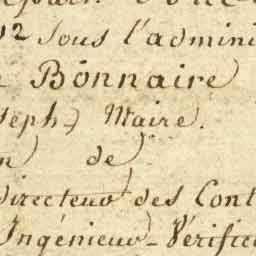 12 Sous l'admini
Bonnaire
seph) Maire.
de
Directeur des Cont
Ingénieur-Vérific